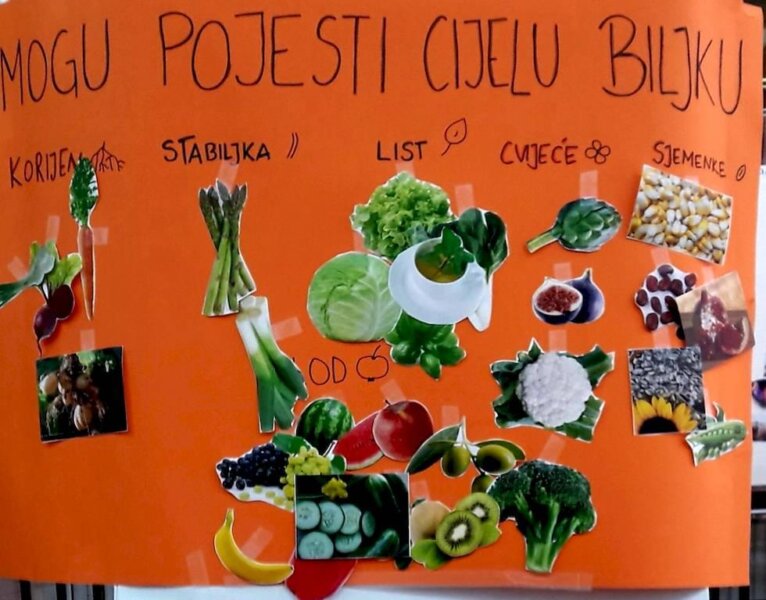 MOGU POJESTI CIJELU BILJKU
KORIJEN
STABILJKA
LIST
CVIJEĆE
SJEMENKE